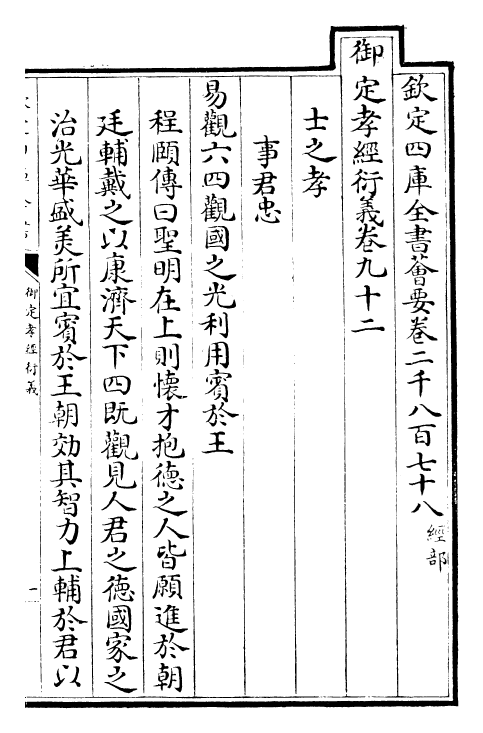 欽定四庫全書薈要卷二千八百七十八 經部
御定孝經衍義卷九十二
士之孝
事君忠
易觀六四觀國之光利用賓於王
程頤傳曰聖明在上則懷才抱德之人皆願進於朝
廷輔戴之以康濟天下四既觀見人君之德國家之
治光華盛美所宜賓於王朝効其智力上輔於君以
御定孝經衍義
一